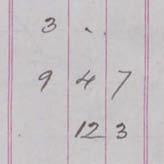 3 .
9 4 7
12 3